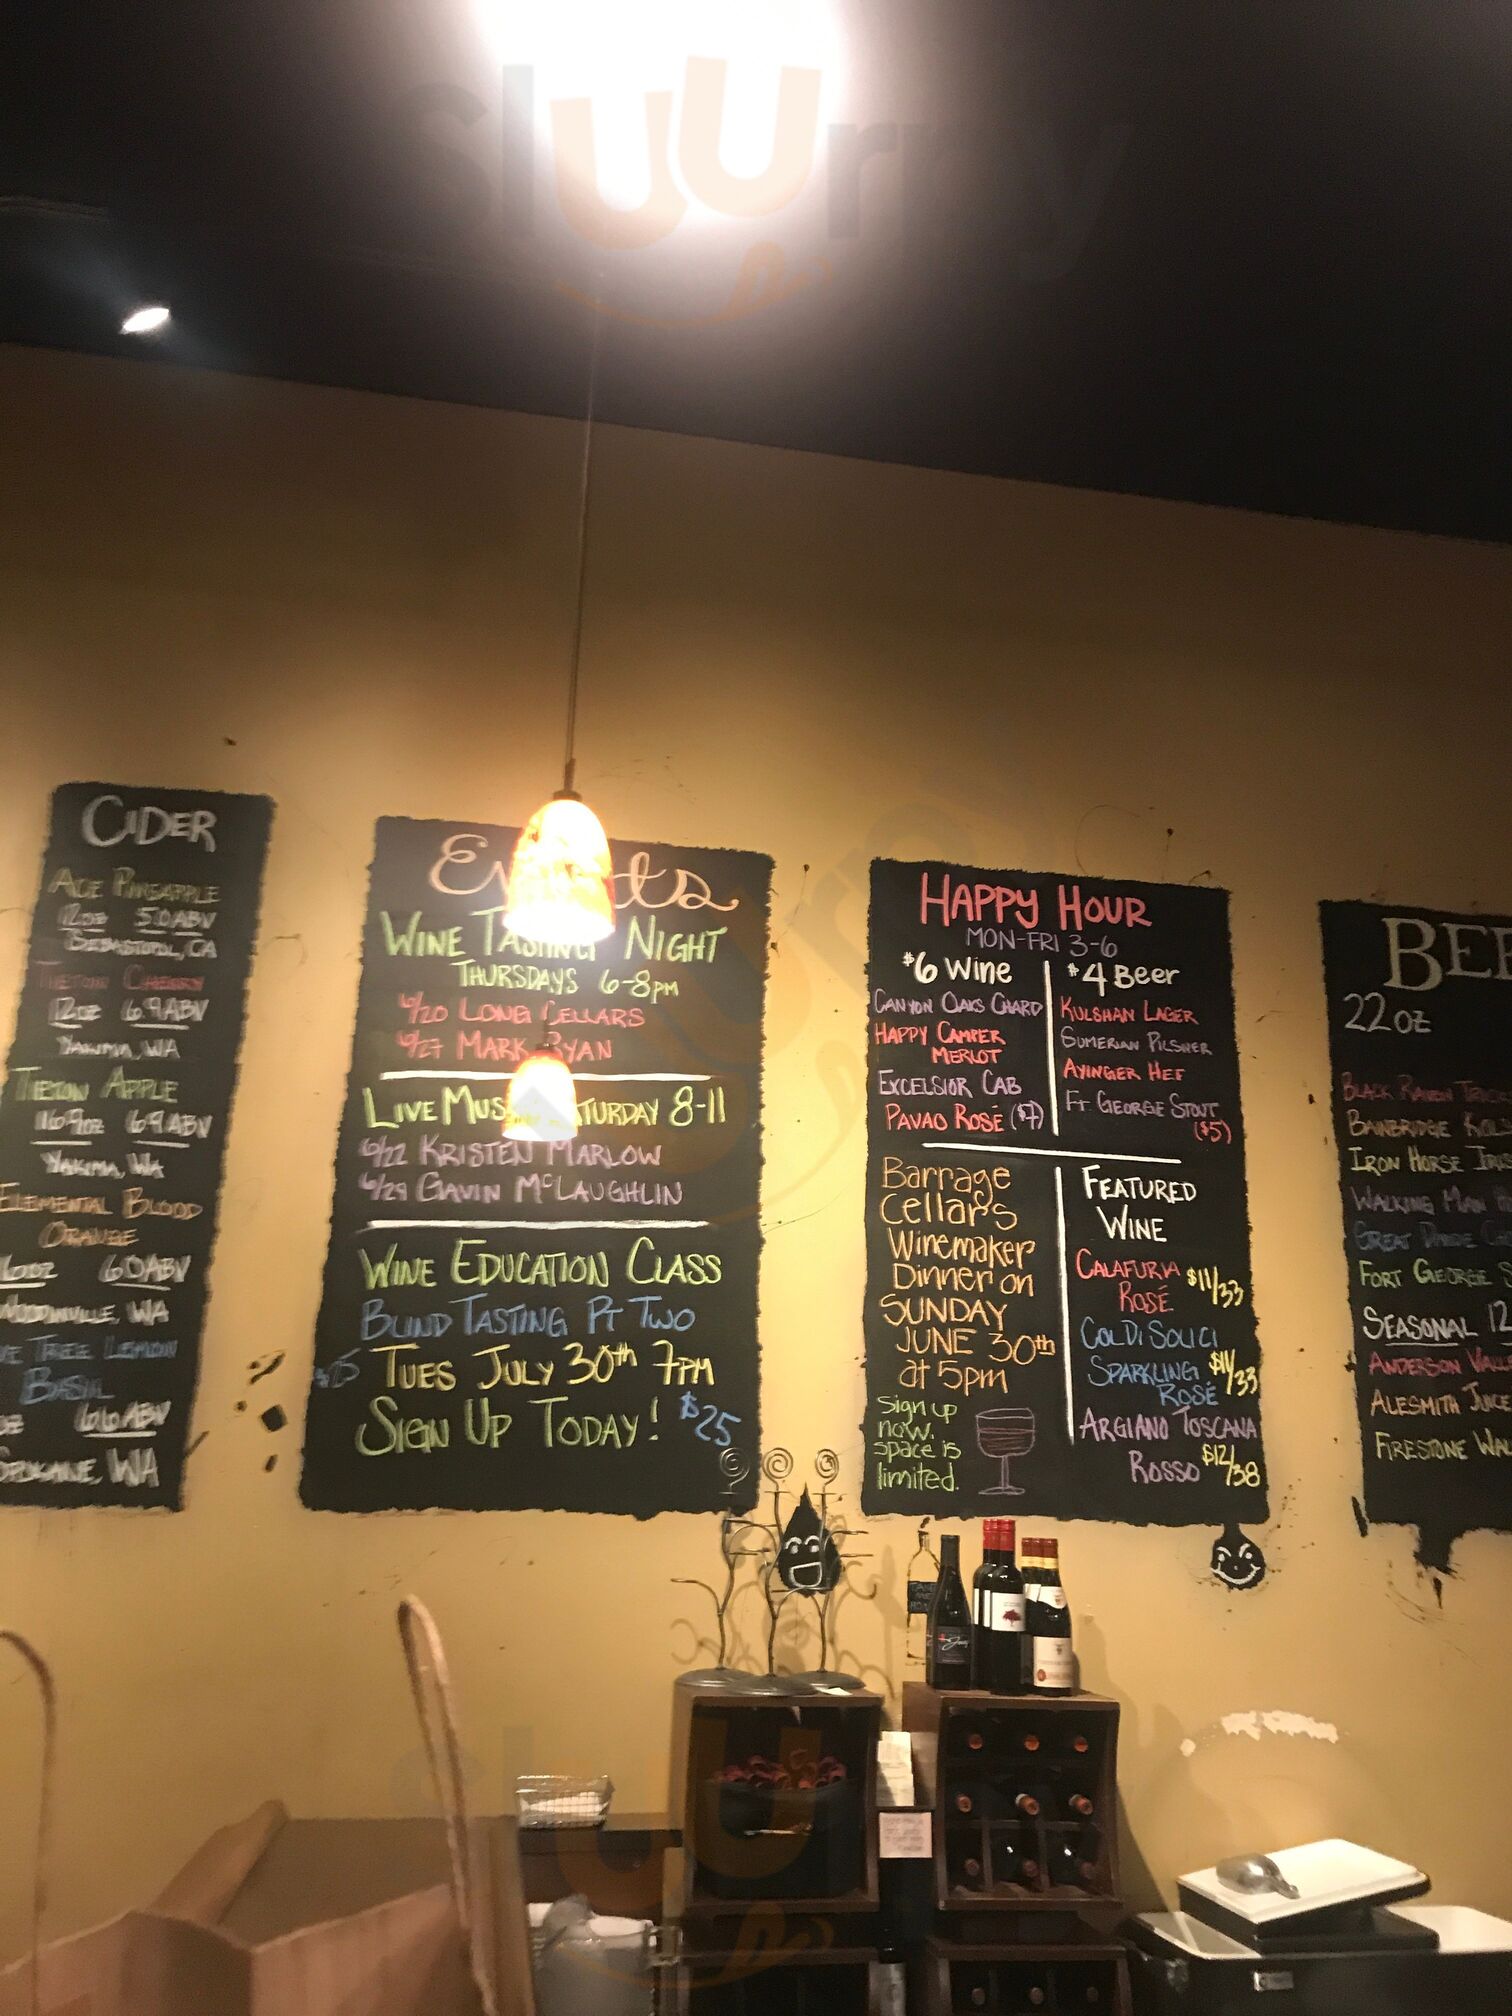 Sluurpy
CIDER
ACE PINEAPPLE
12OZ 5.0ABV
SEBASTOPOL, CA
TIETON CHERRY
12OZ 6.9ABV
YAKIMA, WA
TIETON APPLE
16.9OZ 6.9ABV
YAKIMA, WA
ELEMENTAL BLOOD
ORANGE
16OZ 6.0ABV
WOODINVILLE, WA
TREE LEMON
BASIL
6.6ABV
SPOKANE, WA
WINE TASTING NIGHT
THURSDAYS 6-8PM
6/20 LONG CELLARS
6/27 MARK RYAN
LIVE SATURDAY 8-11
6/22 KRISTEN MARLOW
6/29 GAVIN McLAUGHLIN
WINE EDUCATION CLASS
BLIND TASTING PT TWO
TUES JULY 30th 7PM
SIGN UP TODAY! $25
HAPPY HOUR
MON-FRI 3-6
$6 Wine
CANYON OAKS CHARD
HAPPY CAMPER
MERLOT
EXCELSIOR CAB
PAVAO ROSÉ ($7)
$4 Beer
KULSHAN LAGER
SUMERIAN PILSNER
AYINGER HEF
FT. GEORGE STOUT
($5)
Barrage
Cellars
Winemaker
Dinner on
SUNDAY
JUNE 30th
at 5pm
Sign up
now.
space is
limited.
FEATURED
WINE
CALAFURIA $11/33
ROSÉ
COL DI SOLICI
SPARKLING $11/33
ROSÉ
ARGIANO TOSCANA
ROSSO $12/38
22OZ
BLACK RAVEN
BAINBRIDGE
IRON HORSE
WALKING MAN
GREAT DIVIDE
FORT GEORGE
SEASONAL 12
ANDERSON
ALESMITH JUICE
FIRESTONE